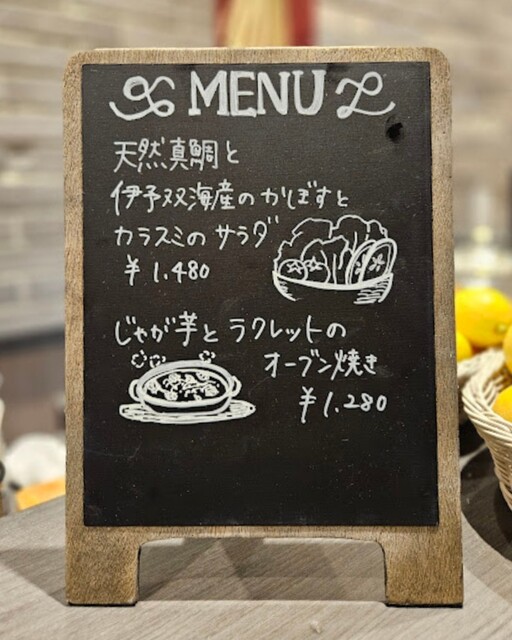 MENU
天然真鯛と
伊予双海産のかぼすと
カラスミのサラダ
¥1.480
じゃが芋とラクレットの
オーブン焼き
¥1.280